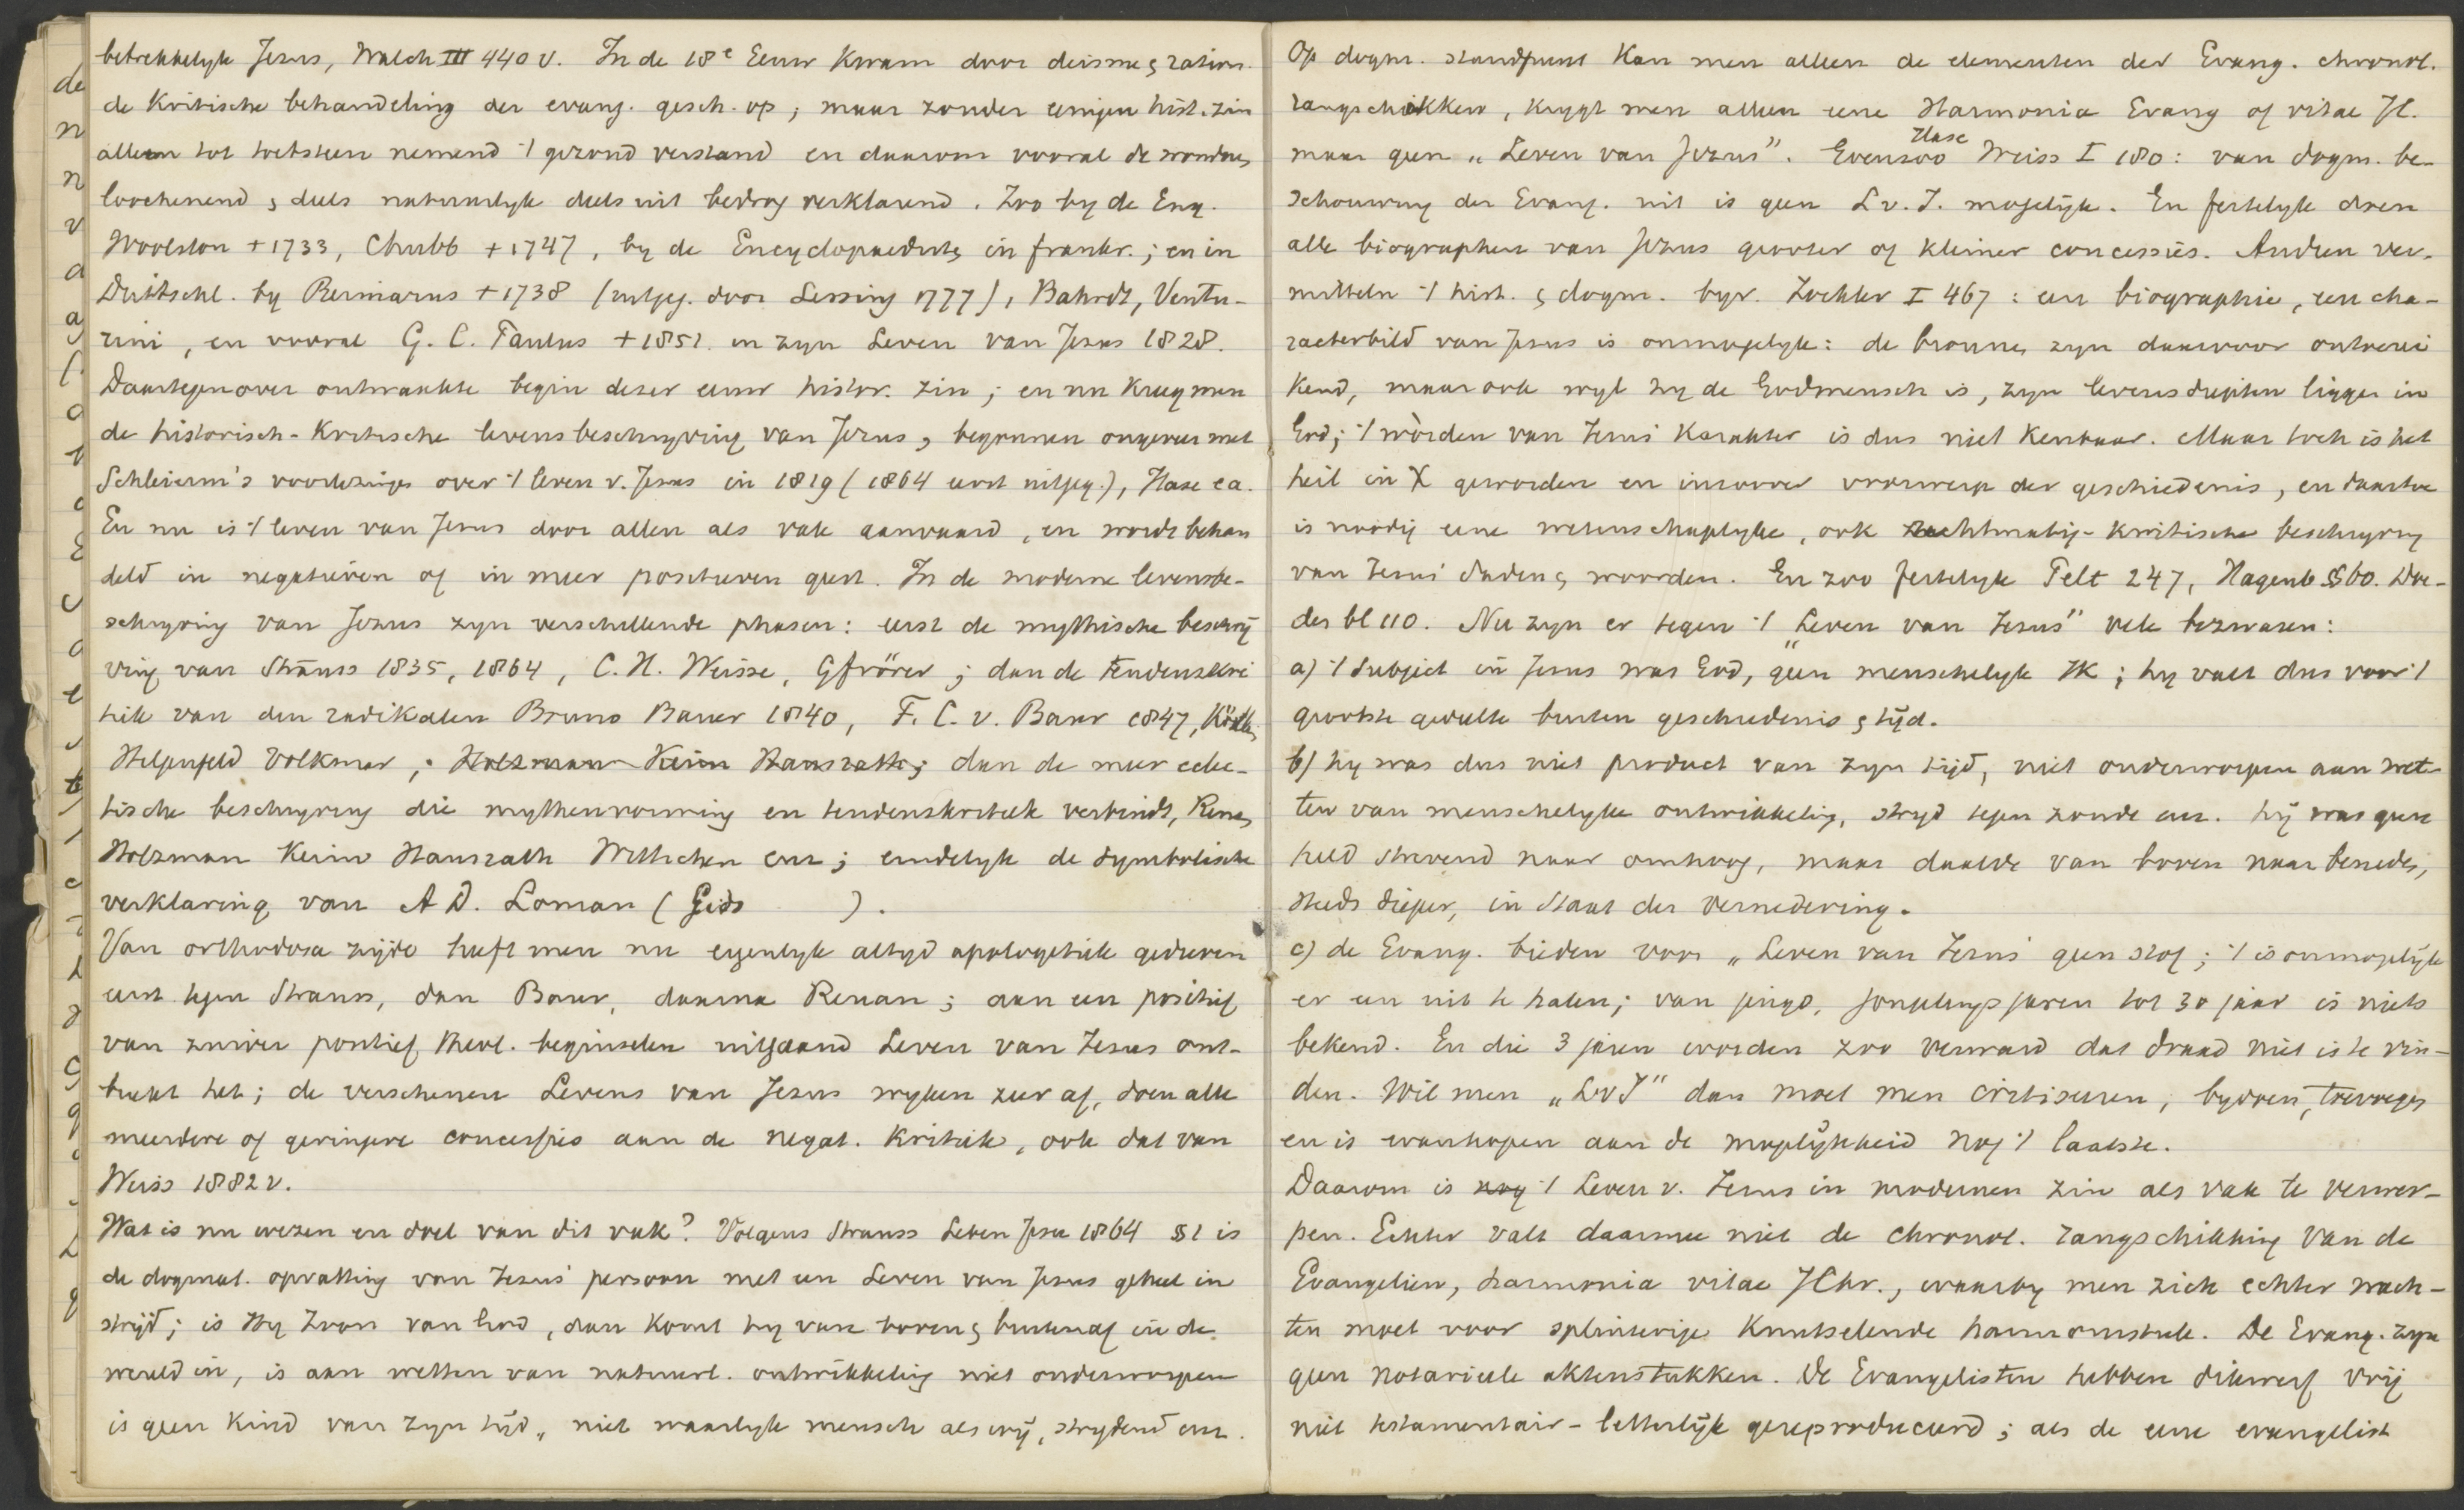 betrekkelyk Jezus, Walch III 440 v. In de 18e Eeuw kwam door deisme & ration.
de kritische behandeling der evang. gesch. op; maar zonder eenigen hist. zin
alleen tot toetssteen nemend 't gezond verstand en daarom vooral de wonderen
loochenend & deels natuurlyk deels uit bedrog verklarend. Zoo by de Eng.
Woolston + 1733, Chubb + 1747, by de Encyclopaedisten in frankr.; en in
Duitschl. by Reimarus + 1738 (uitgeg. door Lessing 1777), Bahrdt, Ventu-
rini, en vooral G. C. Paulus + 1851. en zyn Leven van Jezus 1828.
Daartegenover ontwaakte begin dezer eeuw histor. zin; en nu kreeg men
de historisch-kritische levensbeschryving van Jezus, begonnen ongeveer met
Schleierm's voorlezingen over 't leven v. Jezus in 1819 (1864 eerst uitgeg.), Hase ea.
En nu is 't leven van Jezus door allen als vak aanvaard, en wordt behan
deld in negatieven of in meer positieven geest. In de moderne levensbe-
schryving van Jezus zyn verschillende phasen: eerst de mythische beschrij
ving van Strauss 1835, 1864, C. H. Weisse, Gfrörer; dan de tendenskri
tiek van den radikalen Bruno Bauer 1840, F. C. v. Baur 1847, Köstlin,
Hilgenfeld Volkmar,; Holzmann Keim Hausrath; dan de meer eclec-
tische beschryving die mythenvorming en tendenskritiek verbindt, Renan,
Holzman Keim Hausrath Wittichen enz; eindelyk de symbolische
verklaring van A D. Loman (Gids ).
Van orthodoxe zijde heeft men nu eigenlyk altyd apologetiek gedreven
eerst tegen Strauss, dan Baur, daarna Renan; aan een positief
van zuiver positief theol. beginselen uitgaand Leven van Jezus ont-
breekt het; de verschenen Levens van Jezus wyken zeer af, doen alle
meerdere of geringere concessies aan de negat. kritiek, ook dat van
Weiss 1882 v.
Wat is nu wezen en doel van dit vak? Volgens Strauss Leben Jesu 1864 §1 is
de dogmat. opvatting van Jezus' persoon met een Leven van Jezus geheel in
strijd; is Hy Zoon van God, dan komt hy van boven & buitenaf in de
wereld in, is aan wetten van natuurl. ontwikkeling niet onderworpen
is geen kind van zyn tijd, niet waarlyk mensch als wij, strydend enz.
Op dogm. standpunt kan men alleen de elementen der Evang. chronol.
rangschikken, krygt men alleen eene Harmonia Evang of vitae JC.
maar geen „Leven van Jezus”. Evenzoo Hase Weiss I 180: van dogm. be-
schouwing der Evang. uit is geen L v. J. mogelijk. En feitelyk doen
alle biographen van Jezus grooter of kleiner concessiës. Anderen ver-
mitteln 't hist. & dogm. byv. Zockler I 467: een biographie, een cha-
racterbild van Jezus is onmogelyk: de bronnen zyn daarvoor ontoerei
kend, maar ook wyl hy de Godmensch is, zyn levensdiepten liggen in
God; 't wòrden van Jezus' karakter is dus niet kenbaar. Maar toch is het
heil in X geworden en inzoover voorwerp der geschiedenis, en daartoe
is noodig eene wetenschaplyke, ook rechtmatig-kritische beschryving
van Jezus' daden & woorden. En zoo feitelyk Pelt 247, Hagenb §60. Doe-
des bl 110. Nu zyn er tegen 't „Leven van Jezus” vele bezwaren:
a) 't Subject in Jezus was God, geen menschelyk Ik; hy valt dus voor 't
grootste gedeelte buiten geschiedenis & tijd.
b) hy was dus niet product van zyn tijd, niet onderworpen aan wet-
ten van menschelyke ontwikkeling, stryd tegen zonde enz. hij was geen
held strevend naar omhoog, maar daalde van boven naar beneden,
steeds dieper, in Staat der vernedering.
c) de Evang. bieden voor „Leven van Jezus' geen stof; 't is onmogelijk
er een uit te halen; van jeugd, jongelingsjaren tot 30 jaar is niets
bekend. En die 3 jaren worden zoo verward dat draad niet is te vin-
den. Wil men „LvJ” dan moet men critiseeren, bydoen, toevoegen
en is wanhopen aan de mogelijkheid nog 't laatste.
Daarom is nog 't Leven v. Jezus in modernen zin als vak te verwer-
pen. Echter valt daarmee niet de chronol. rangschikking van de
Evangelien, harmonia vitae JChr., waarby men zich echter wach-
ten moet voor splinterige knutselende harmonistiek. De Evang. zyn
geen notarieele aktenstukken. De Evangelisten hebben dikwerf vrij
niet testamentair-letterlijk gereproduceerd; als de eene evangelist